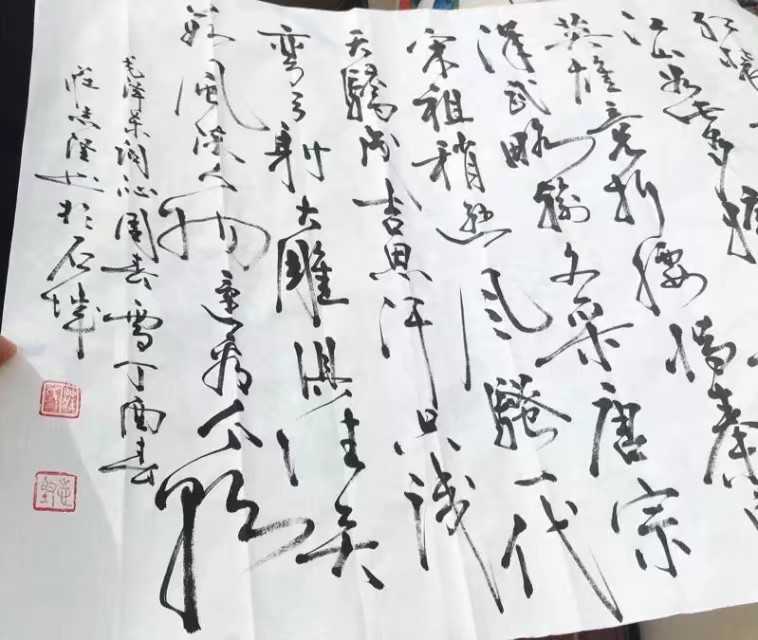 红装
江山如此
英雄竞折腰惜秦皇
漢武略輸文采唐宗
宋祖稍逊风騷一代
天驕成吉思汗只识
弯弓射大雕俱往矣
数风流人物还看今朝
毛泽东词沁園春雪丁酉春
志隆书於石城